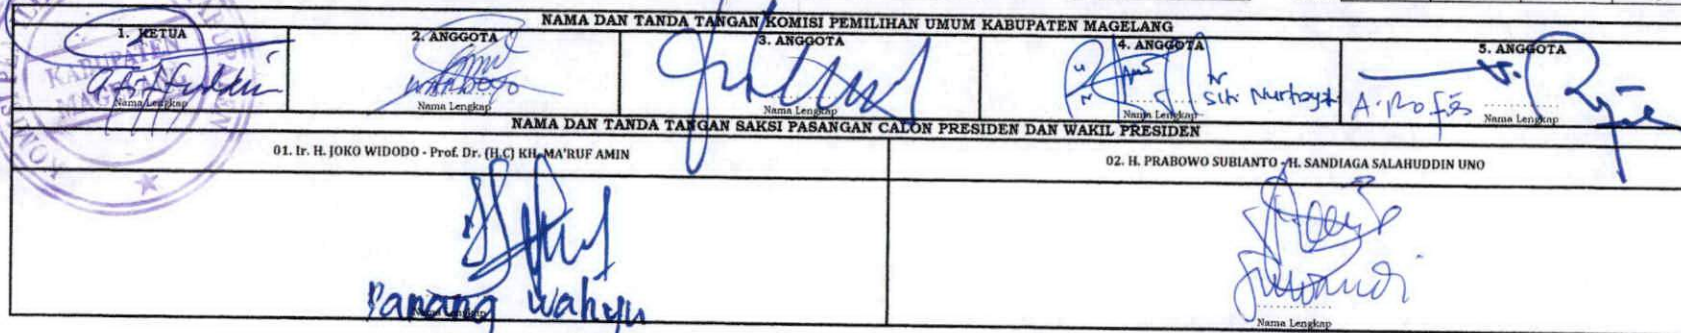 NAMA DAN TANDA TANGAN KOMISI PEMILIHAN UMUM KABUPATEN MAGELANG
1. KETUA
2. ANGGOTA
3. ANGGOTA
4. ANGGOTA
5. ANGGOTA
KABUPATEN
MAGELANG
Afifuddin
Siti Nurhayati
A. Rofiq
Nama Lengkap
Nama Lengkap
Nama Lengkap
Nama Lengkap
Nama Lengkap
NAMA DAN TANDA TANGAN SAKSI PASANGAN CALON PRESIDEN DAN WAKIL PRESIDEN
01. Ir. H. JOKO WIDODO - Prof. Dr. (H.C) KH. MA'RUF AMIN
02. H. PRABOWO SUBIANTO - H. SANDIAGA SALAHUDDIN UNO
Panang Wahyu
Suwandi
Nama Lengkap
Nama Lengkap